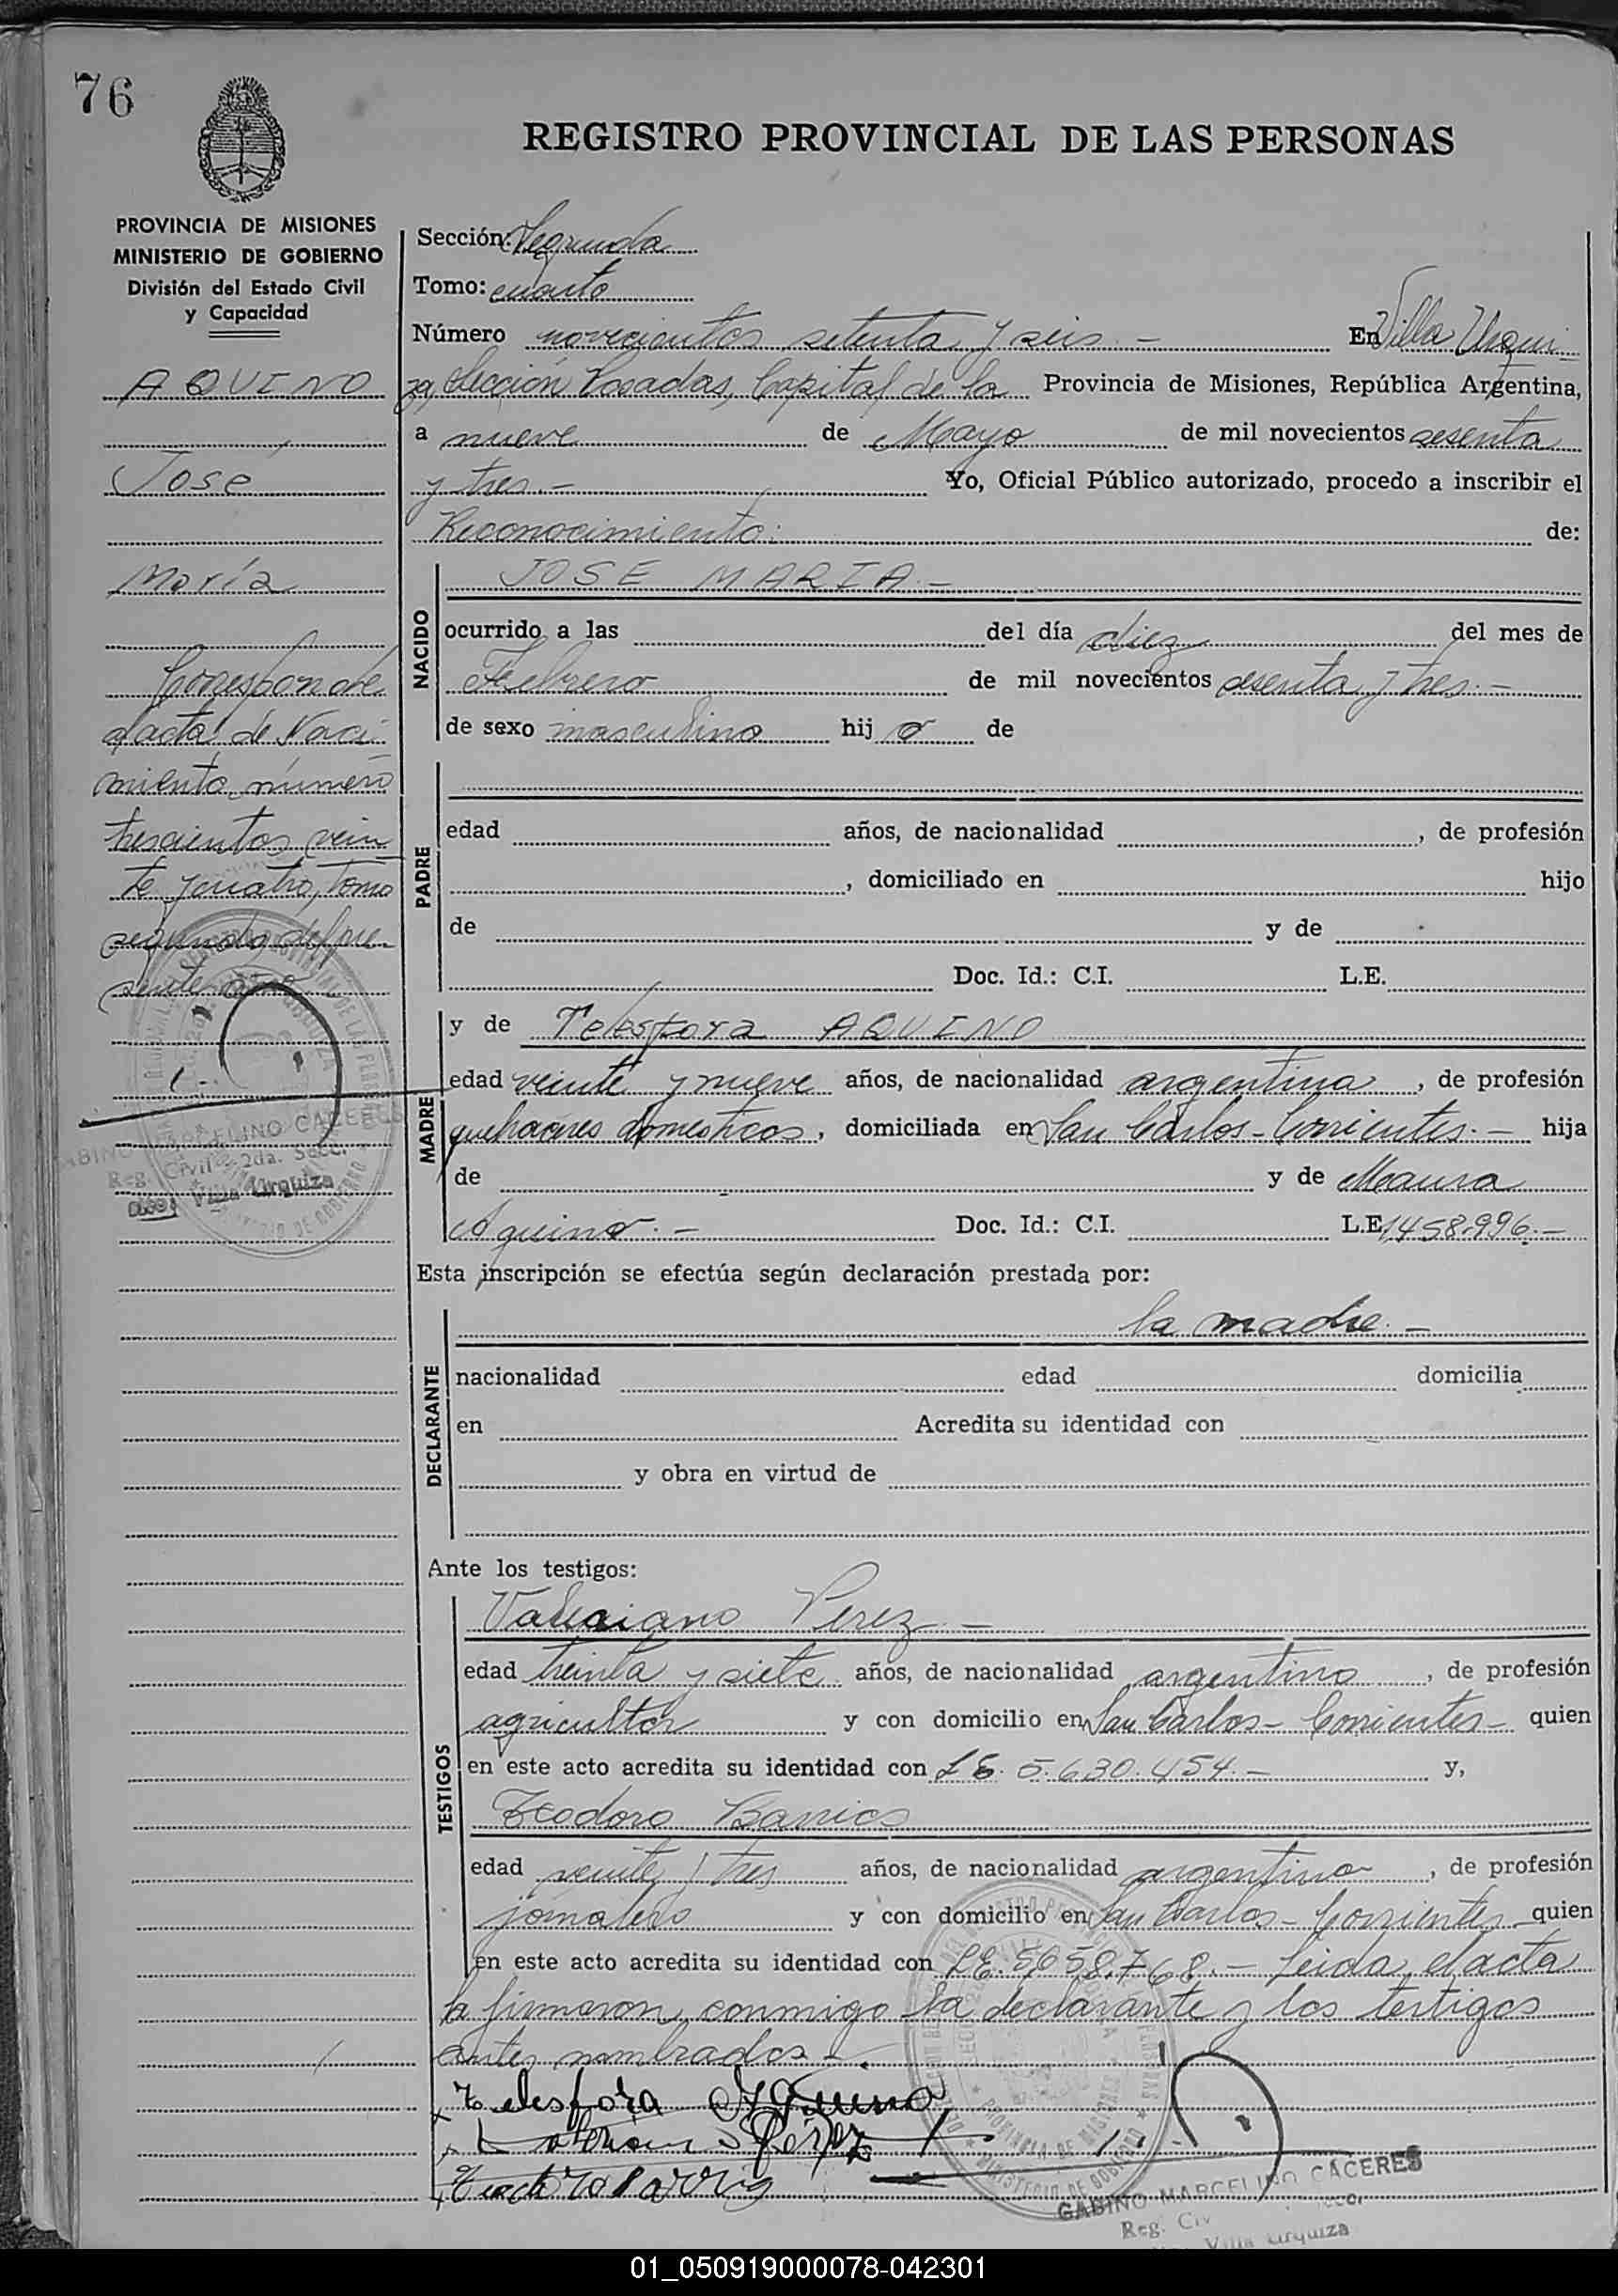 76
REGISTRO PROVINCIAL DE LAS PERSONAS
PROVINCIA DE MISIONES
MINISTERIO DE GOBIERNO
División del Estado Civil
y Capacidad
AQUINO
José
María
Corresponde
a acta de Naci
miento número
trescientos vein
te y cuatro, Tomo
segundo del pre
sente año
Sección: Segunda
Tomo: cuarto
Número novecientos setenta y seis.- En Villa Urqui
za, Sección Posadas, Capital de la Provincia de Misiones, República Argentina,
a nueve de Mayo de mil novecientos sesenta
y tres.- Yo, Oficial Público autorizado, procedo a inscribir el
Reconocimiento: de:
NACIDO
JOSE MARIA.-
ocurrido a las del día diez del mes de
Febrero de mil novecientos sesenta y tres.-
de sexo masculino hij o de
PADRE
edad años, de nacionalidad , de profesión
, domiciliado en hijo
de y de
Doc. Id.: C.I. L.E.
MADRE
y de Telesfora AQUINO
edad veinte y nueve años, de nacionalidad argentina , de profesión
quehaceres domesticos, domiciliada en San Carlos-Corrientes.- hija
de y de Maura
Aquino.- Doc. Id.: C.I. L.E. 1.458.996.-
Esta inscripción se efectúa según declaración prestada por:
DECLARANTE
la madre.-
nacionalidad edad domicilia
en Acredita su identidad con
y obra en virtud de
Ante los testigos:
TESTIGOS
Valeriano Perez.-
edad treinta y siete años, de nacionalidad argentino , de profesión
agricultor y con domicilio en San Carlos- Corrientes- quien
en este acto acredita su identidad con L E. 5.630.454.- y,
Teodoro Barrios
edad veinte y tres años, de nacionalidad argentino , de profesión
jornalero y con domicilio en San Carlos- Corrientes quien
en este acto acredita su identidad con LE. 5.658.768.- Leida el acta
la firmaron conmigo la declarante y los testigos
antes nombrados.-
Telesfora Aquino
Perez
GABINO MARCELINO CACERES
Reg. Civ
Villa Urquiza
MARCELINO CACERES
Reg. Civil 2da. Secc.
Villa Urquiza
01_050919000078-042301